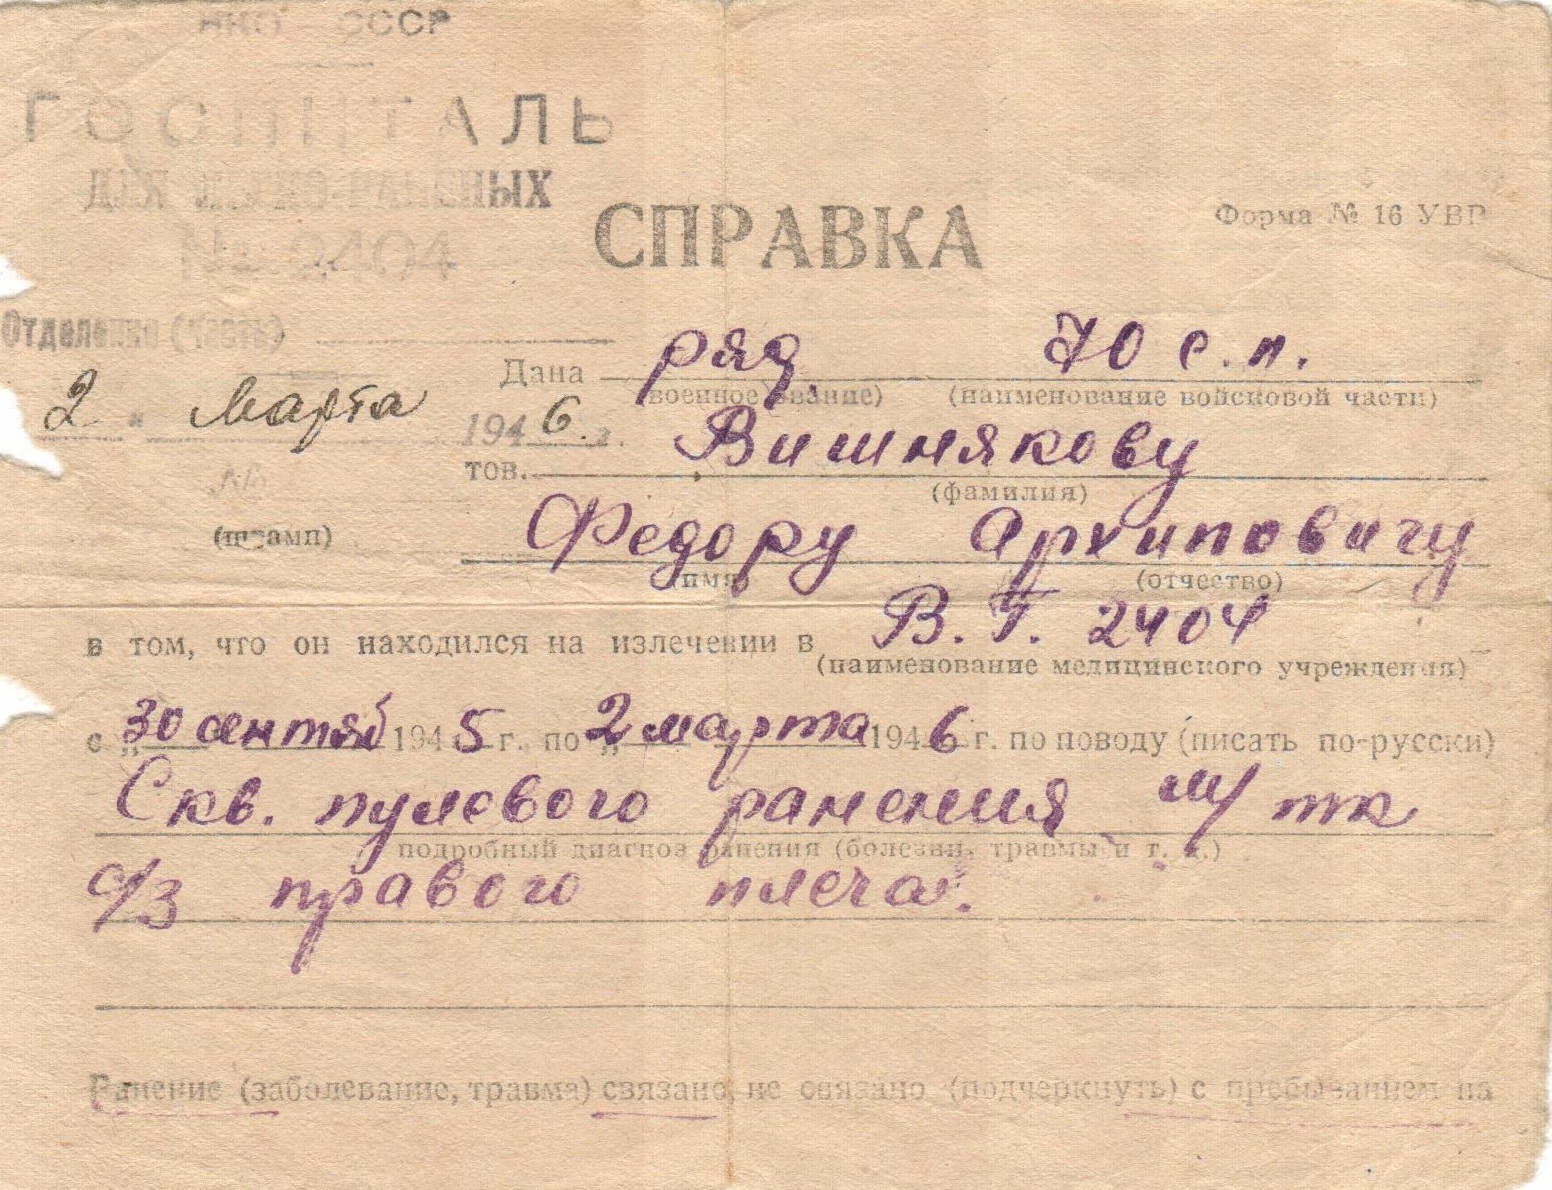 НКО СССР
ГОСПИТАЛЬ
ДЛЯ ЛЕГКО-РАНЕНЫХ
№ 2404
СПРАВКА
Форма № 16 УВГ
Отделение (часть)
Дана ряд. 70 с.п.
(военное звание) (наименование войсковой части)
2 " Марта 1946 г.
тов. Вишнякову
(фамилия)
№
(штамп)
Федору Архиповичу
(имя) (отчество)
в том, что он находился на излечении в В.Г. 2404
(наименование медицинского учреждения)
с „30 сентяб 1945 г. по „2 марта 1946 г. по поводу (писать по-русски)
Скв. пулевого ранения м/тк
подробный диагноз ранения (болезни, травмы и т. д.)
с/з правого плеча.
Ранение (заболевание, травма) связано, не связано (подчеркнуть) с пребыванием на